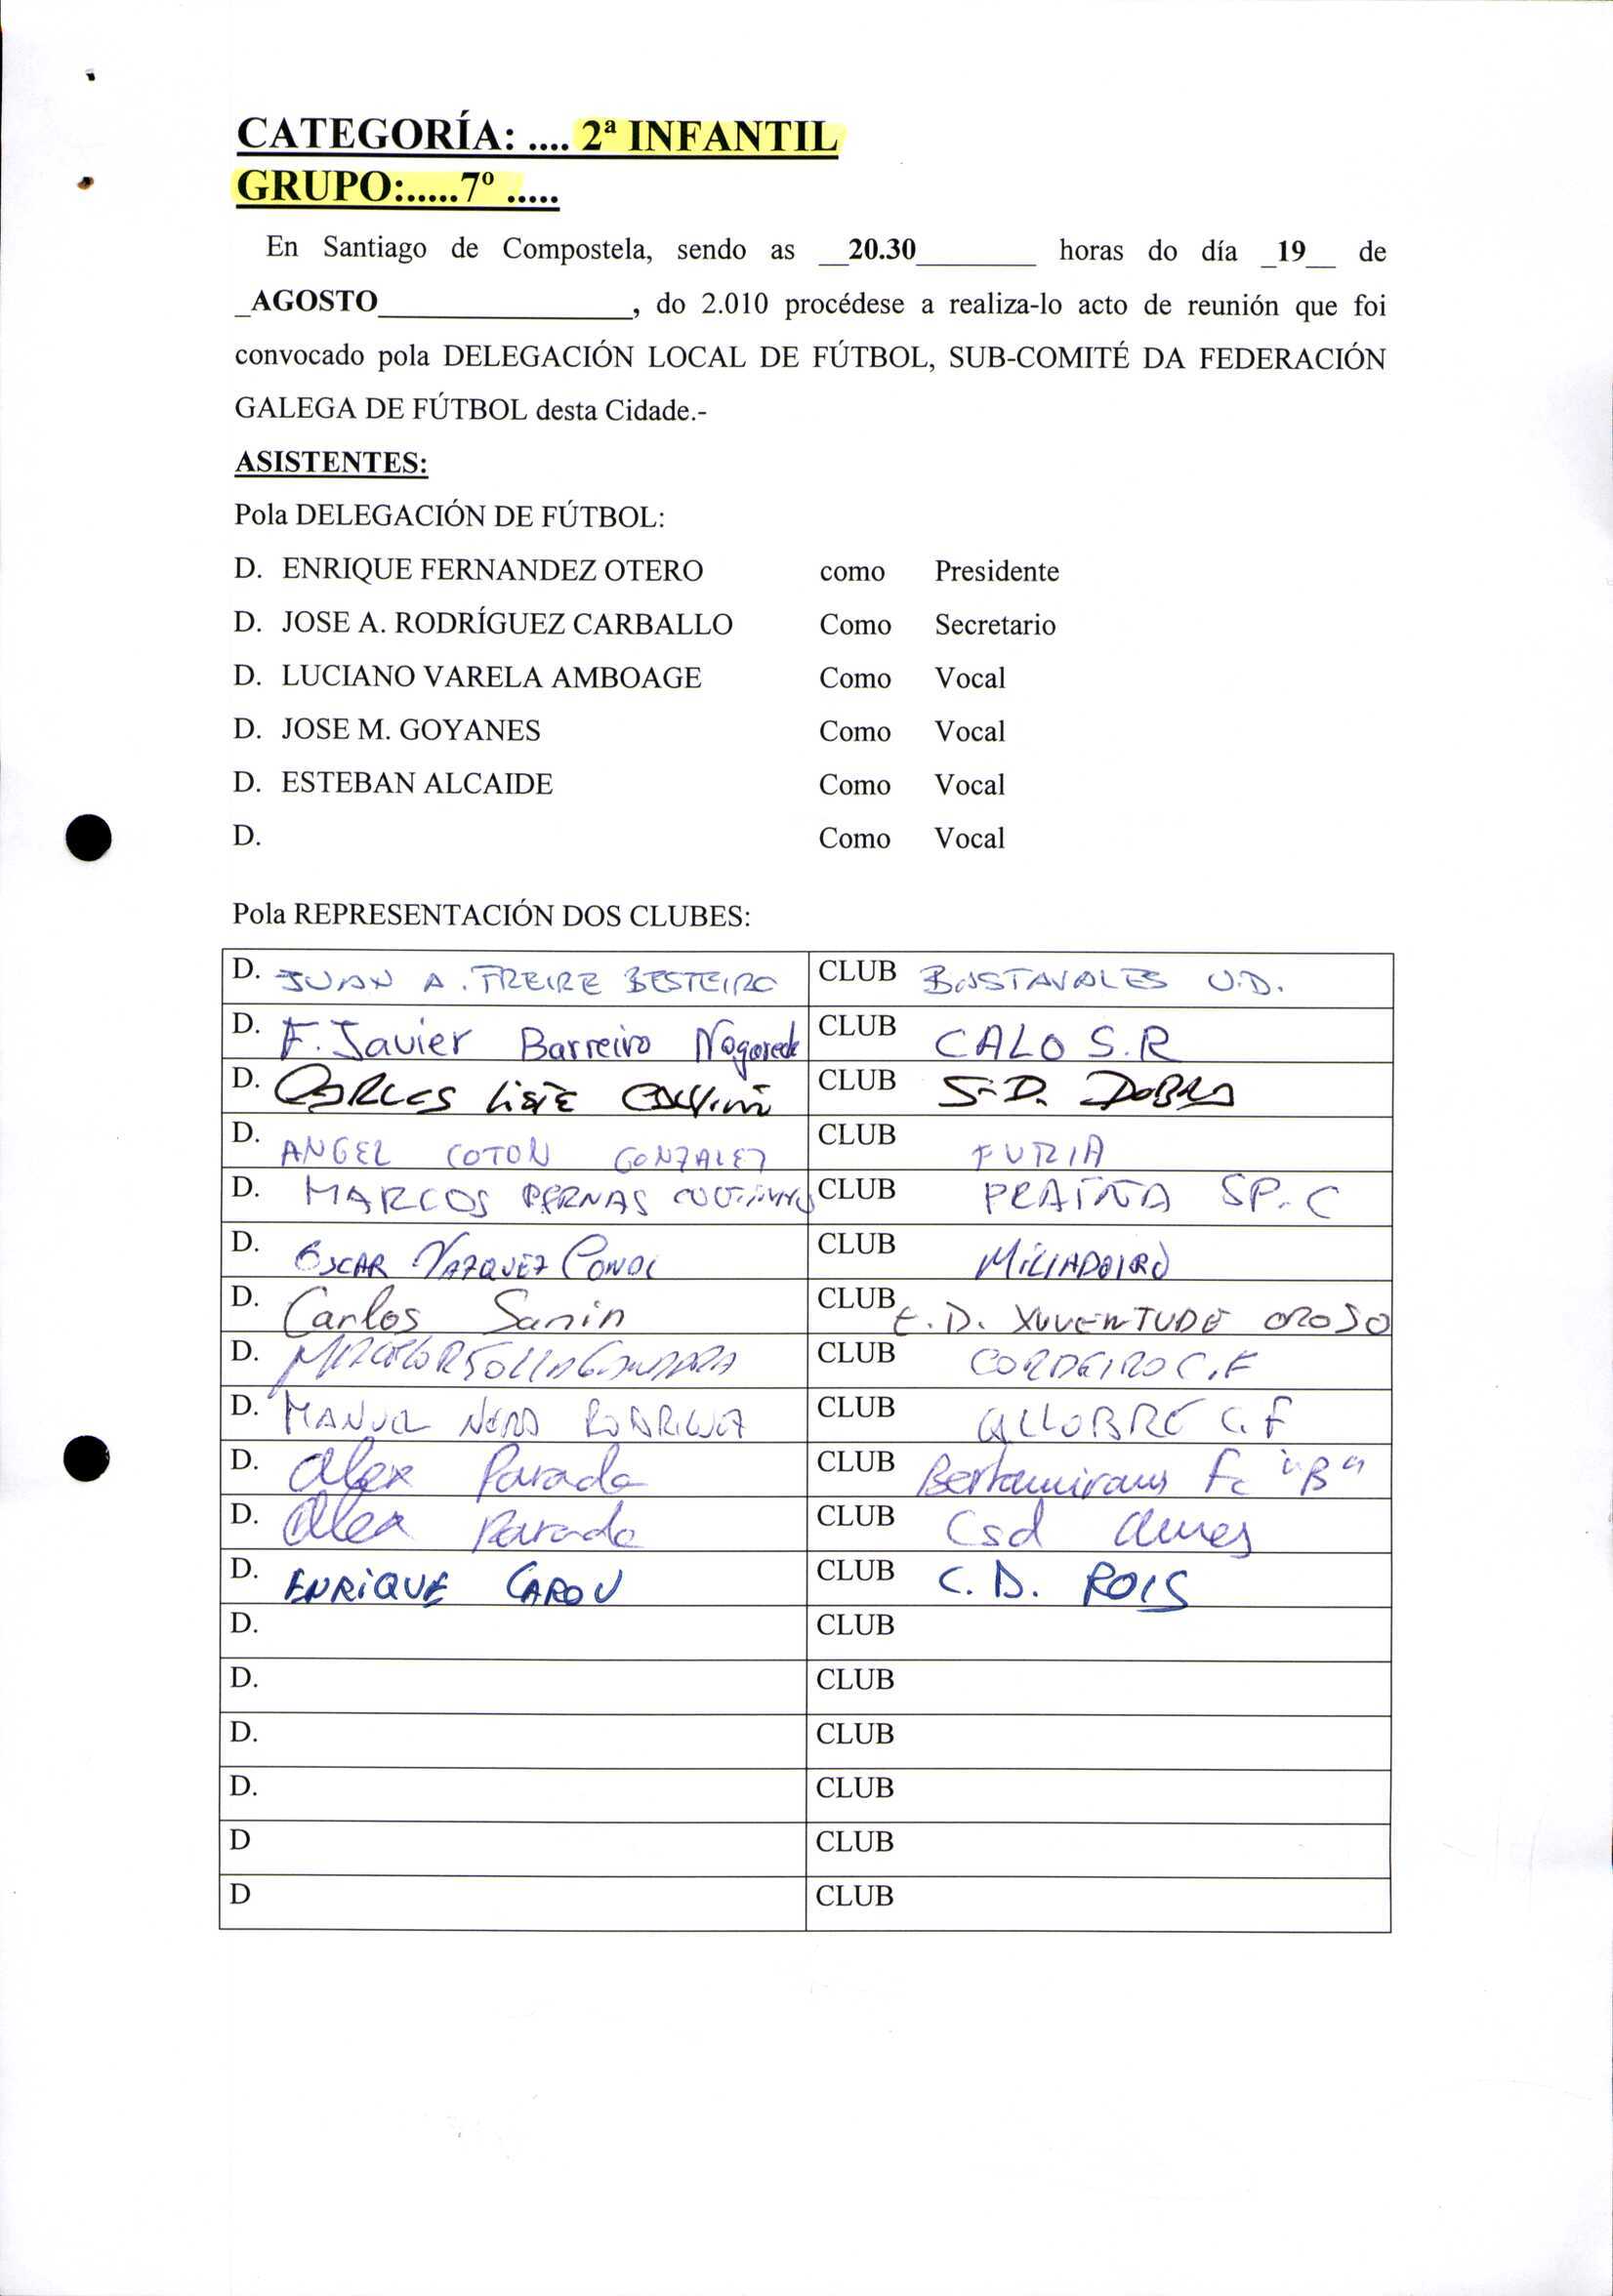 CATEGORÍA: .... 2ª INFANTIL
GRUPO:.....7º .....
En Santiago de Compostela, sendo as __20.30________ horas do día _19__ de
_AGOSTO_________________, do 2.010 procédese a realiza-lo acto de reunión que foi
convocado pola DELEGACIÓN LOCAL DE FÚTBOL, SUB-COMITÉ DA FEDERACIÓN
GALEGA DE FÚTBOL desta Cidade.-
ASISTENTES:
Pola DELEGACIÓN DE FÚTBOL:
D. ENRIQUE FERNANDEZ OTERO como Presidente
D. JOSE A. RODRÍGUEZ CARBALLO Como Secretario
D. LUCIANO VARELA AMBOAGE Como Vocal
D. JOSE M. GOYANES Como Vocal
D. ESTEBAN ALCAIDE Como Vocal
D. Como Vocal
Pola REPRESENTACIÓN DOS CLUBES:
D. JUAN A. FREIRE BESTEIRO CLUB BUSTAVALES U.D.
D. F. Javier Barreiro CLUB CALO S.R
D. CARLOS LISTE CLUB S.D. DUBRA
D. ANGEL COTON GONZALEZ CLUB FURIA
D. MARCOS PERNAS CLUB PRAIÑA SP. C
D. OSCAR VAZQUEZ CONDE CLUB MILLADOIRO
D. Carlos Sanin CLUB E.D. XUVENTUDE OROSO
D. CLUB CORDEIRO C.F
D. MANUEL RODRIGUEZ CLUB CALLOBRE C.F
D. Alex Parada CLUB Bertamirans Fc "B"
D. Alex Parada CLUB Csd Ames
D. ENRIQUE CAROU CLUB C.D. ROIS
D. CLUB
D. CLUB
D. CLUB
D. CLUB
D CLUB
D CLUB